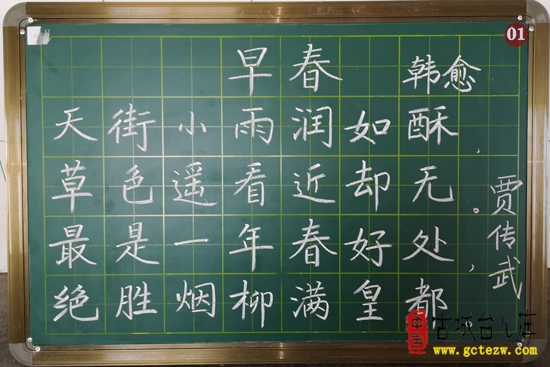 01
早春 韩愈
天街小雨润如酥,
草色遥看近却无。
最是一年春好处,
绝胜烟柳满皇都
贾传武
中国古城台儿庄
www.gctezw.com